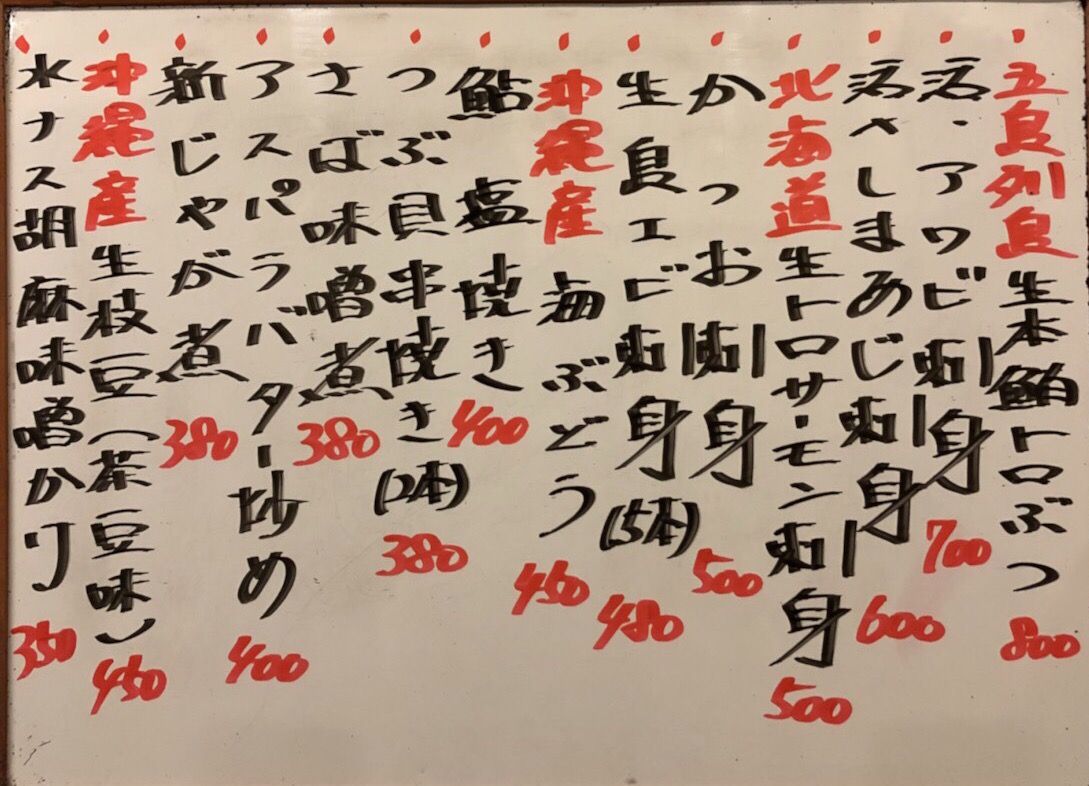 五島列島 生本鮪トロぶつ 800
活・アワビ刺身 700
活〆しまあじ刺身 600
北海道 生トロサーモン刺身 500
かつお刺身 500
生島エビ刺身(5本) 480
沖縄産 海ぶどう 450
鮎 塩焼き 400
つぶ貝串焼き(2本) 380
さば味噌煮 380
アスパラバター炒め 400
新じゃが煮 380
沖縄産 生枝豆(茶豆味) 450
水ナス胡麻味噌かけ 350